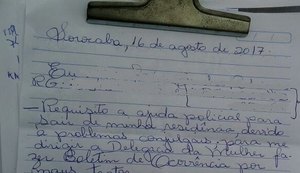 Sorocaba, 16 de agosto de 2017.
Eu
RG:
— Requisito a ajuda policial para
sair de minha residência devido
a problemas conjugais, para me
dirigir a Delegacia da Mulher fa-
zer Boletim de Ocorrência por
maus tratos